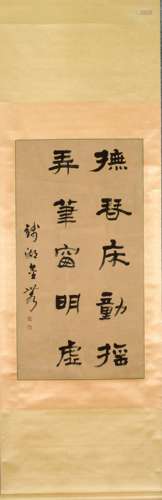 撫琴床動搖
弄筆窗明虛